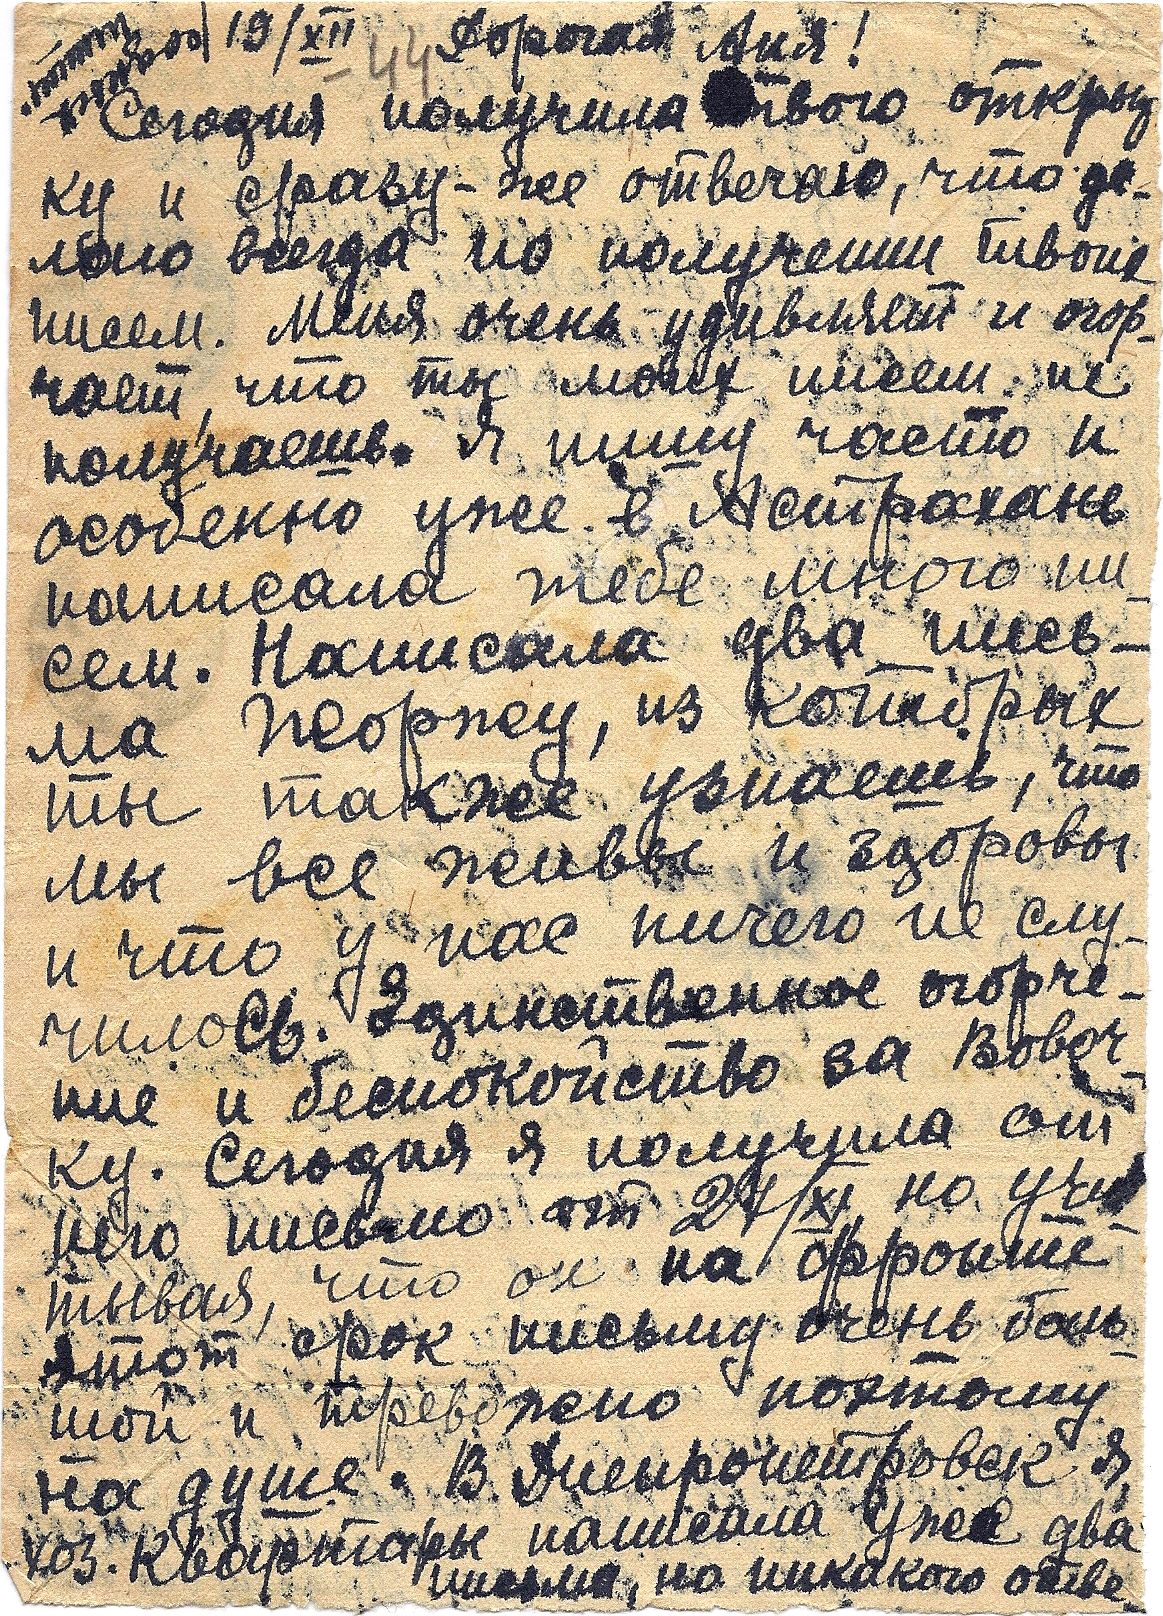 19/XII - 44 Дорогая Лиля!
Сегодня получила твого открыт
ку и сразу-же отвечаю, что де-
лаю всегда по получении твоих
писем. Меня очень удивляет и огор-
чает, что ты моих писем не
получаешь. Я пишу часто и
особенно уже в Астрахань
написала тебе много пи
сем. Написала два пись-
ма Жоржу, из которых
ты также узнаешь, что
мы все живы и здоровы
и что у нас ничего не слу-
чилось. Единственное огорче-
ние и беспокойство за Вовоч-
ку. Сегодня я получила от
него письмо от 27/XI, но учи
тывая, что он на фронте
этот срок письму очень боль-
шой и тревожно поэтому
на душе. В Днепропетровск я
хоз. квартиры написала уже два
письма, но никакого отве-